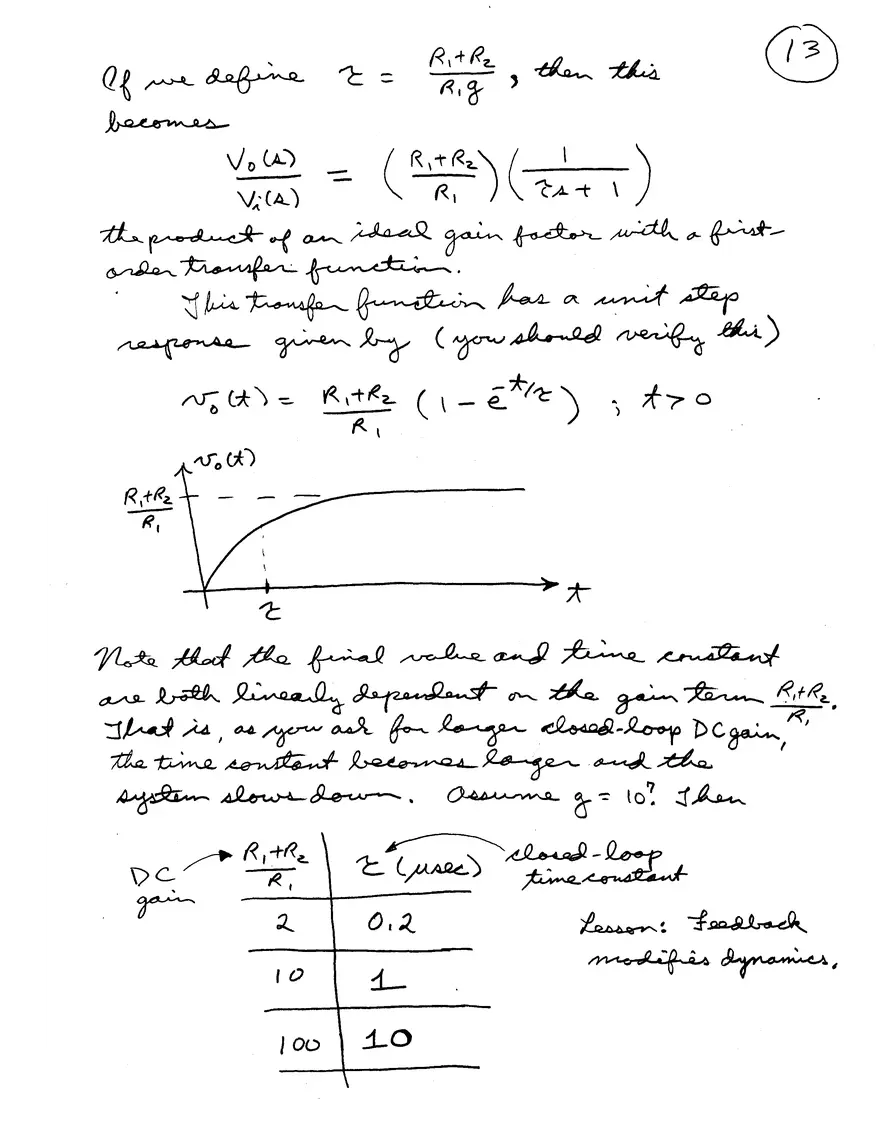 13
If we define τ = (R₁+R₂)/(R₁g), then this
becomes
V₀(s)/Vᵢ(s) = ((R₁+R₂)/R₁)(1/(τs + 1))
the product of an ideal gain factor with a first-
order transfer function.
This transfer function has a unit step
response given by (you should verify this)
v₀(t) = (R₁+R₂)/R₁ (1 - e^(-t/τ)) ; t > 0
v₀(t)
(R₁+R₂)/R₁
t
τ
Note that the final value and time constant
are both linearly dependent on the gain term (R₁+R₂)/R₁.
That is, as you ask for larger closed-loop DC gain,
the time constant becomes larger and the
system slows down. Assume g = 10⁷. Then
DC gain
(R₁+R₂)/R₁ τ (μsec)
closed-loop
time constant
2 0.2
10 1
100 10
Lesson: Feedback
modifies dynamics.